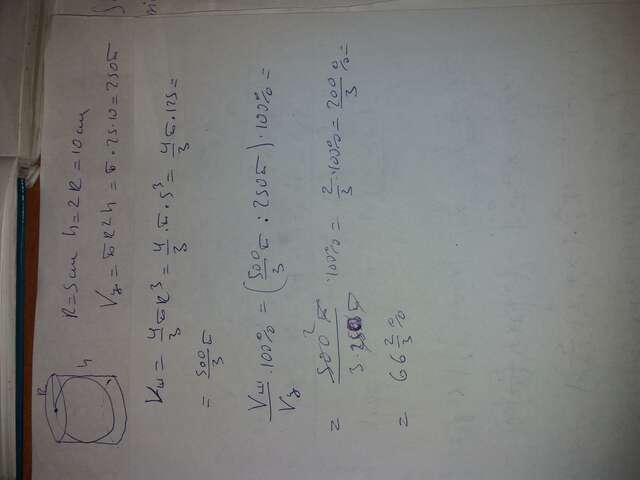 R h
R=5см h=2R=10см
Vц=πR²h=π·25·10=250π
Vш=4/3πR³=4/3·π·5³=4/3π·125=
=500/3π
Vш/Vц·100%=(500/3π:250π)·100%=
=500²π/3·250π·100%=2/3·100%=200/3%=
=66 2/3%